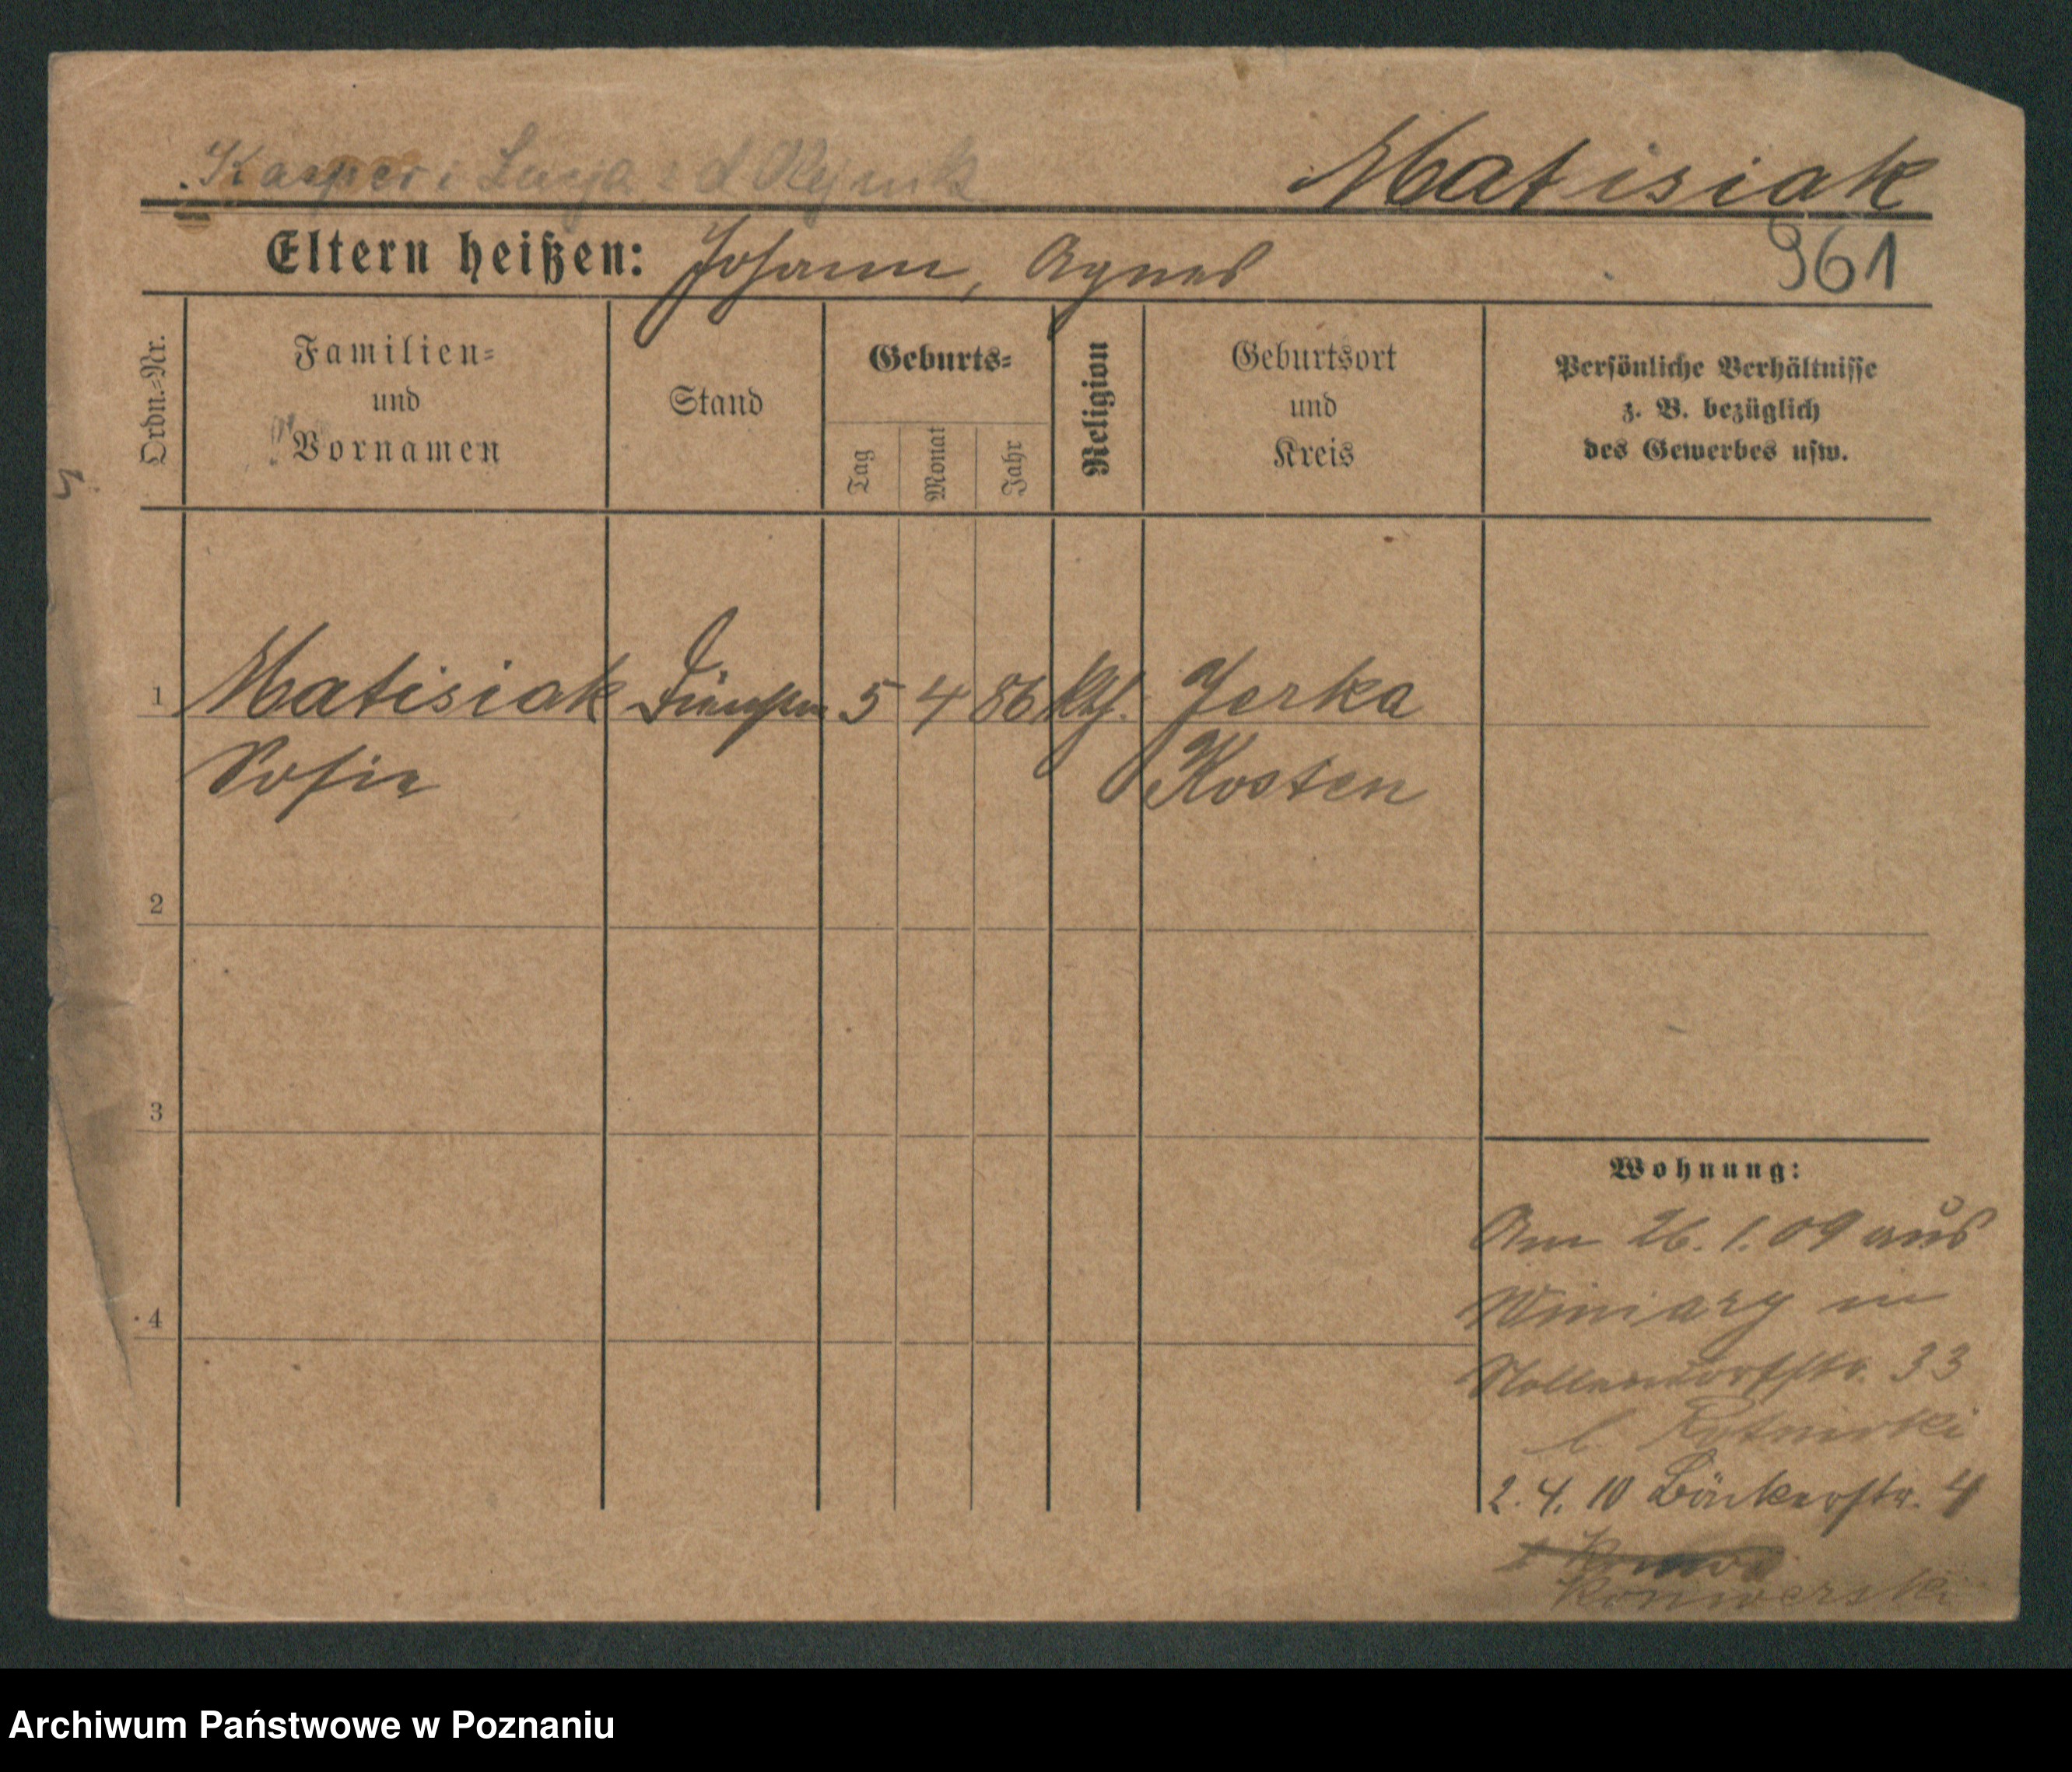 Kasper i Lucja z d
Matisiak
961
Eltern heißen: Johann, Agnes
Ordn.-Nr.
Familien-
und
Vornamen
Stand
Geburts-
Tag
Monat
Jahr
Religion
Geburtsort
und
Kreis
Persönliche Verhältnisse
z. B. bezüglich
des Gewerbes usw.
1 Matisiak 5 4 86 kth. Jerka
Sofie Kosten
2
3
4
Wohnung:
Am 26. 1. 09 aus
Winiary in
Nollendorfstr. 33
b.
2. 4. 10 Bäckerstr. 4
Konwerski
Archiwum Państwowe w Poznaniu